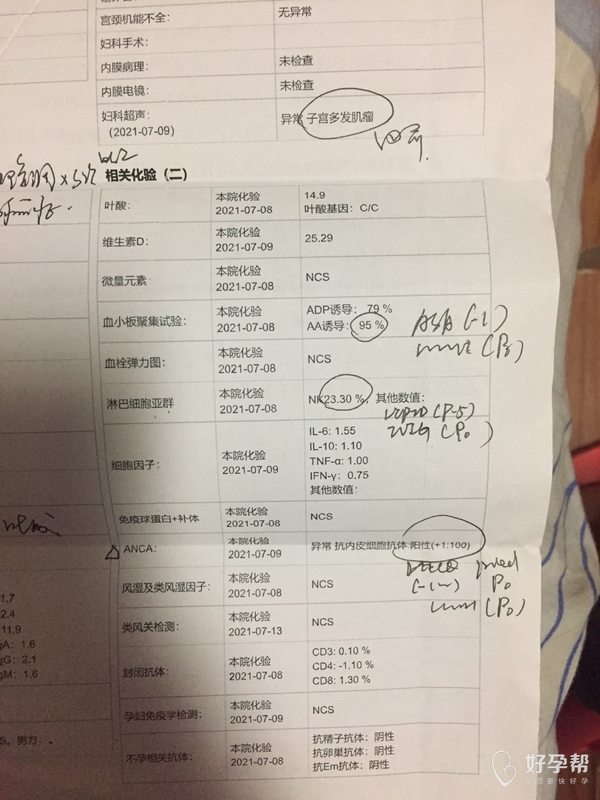 宫颈机能不全： 无异常
妇科手术：
内膜病理： 未检查
内膜电镜： 未检查
妇科超声： 异常 子宫多发肌瘤
（2021-07-09）
相关化验（二）
叶酸： 本院化验 14.9
2021-07-08 叶酸基因：C/C
维生素D： 本院化验 25.29
2021-07-09
微量元素 本院化验 NCS
2021-07-08
血小板聚集试验： 本院化验 ADP诱导：79 %
2021-07-08 AA诱导：95 %
ASA (-1)
血栓弹力图： 本院化验 NCS
2021-07-08
淋巴细胞亚群 本院化验 NK23.30 %，其他数值：
2021-07-08
细胞因子： 本院化验 IL-6: 1.55
2021-07-09 IL-10: 1.10
TNF-α: 1.00
IFN-γ：0.75
其他数值：
免疫球蛋白+补体 本院化验 NCS
2021-07-08
ANCA： 本院化验 异常 抗内皮细胞抗体:阳性(+1:100)
2021-07-09
风湿及类风湿因子： 本院化验 NCS
2021-07-08
类风关检测： 本院化验 NCS
2021-07-13
封闭抗体： 本院化验 CD3: 0.10 %
2021-07-08 CD4: -1.10 %
CD8: 1.30 %
孕妇免疫学检测： 本院化验 NCS
2021-07-09
不孕相关抗体： 本院化验 抗精子抗体：阴性
2021-07-08 抗卵巢抗体：阴性
抗Em抗体：阴性
1.7
2.4
11.9
gA：1.6
gG：2.1
gM：1.6
S，男方：.
好孕帮